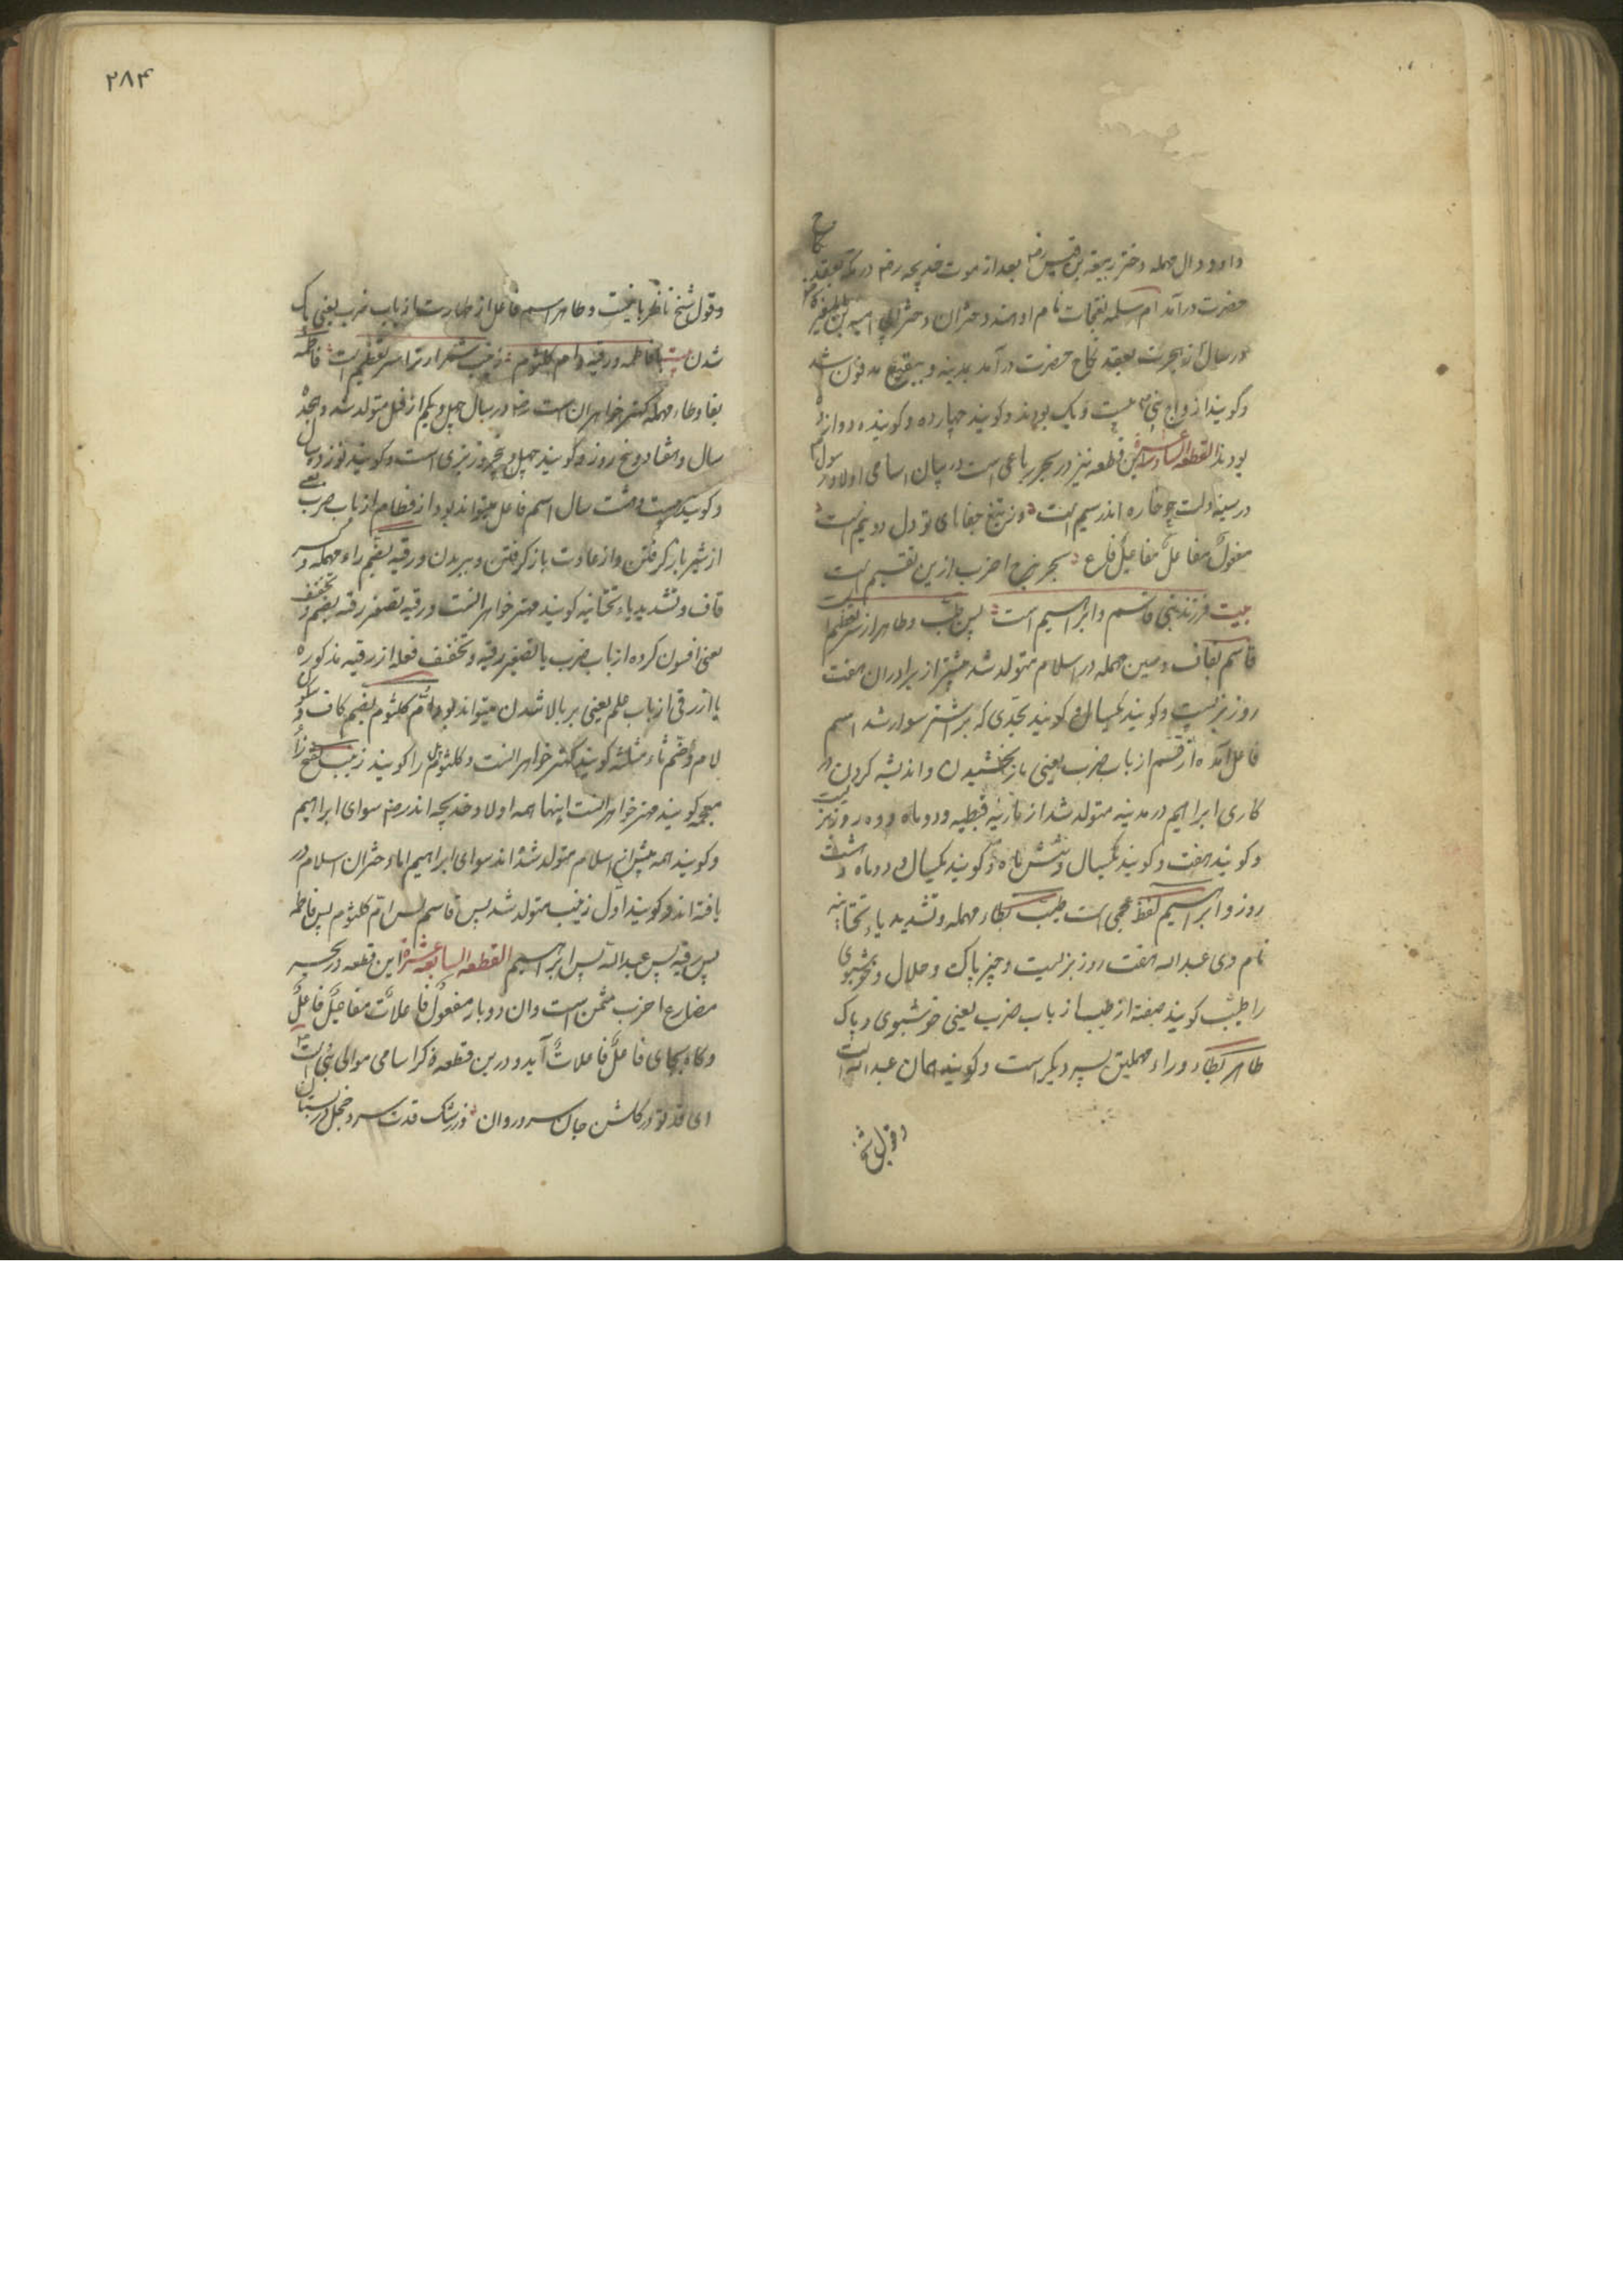 واو و دال مهمله دختر زمعه بن قیس رض بعد از موت خدیجه رض در مکه بعقد نکاح
حضرت درآمد ام سلمه بفتحات نام او هند دختر ابی امیه بن المغیره
در سال از هجرت بعقد نکاح حضرت درآمد بمدینه و ببقیع مدفون شد
و کویند ازواج نبی بیست و یک بودند و کویند چهارده و کویند دوازده
بودند القطعه السادسه عشره این قطعه نیز در بحر رباعی است در بیان اسامی اولاد رسول
در سینه دلت چو خاره اندر سیم است وز تیغ جفاهای تو دل دو نیم است
مفعول مفاعل مفاعیل فاع بحر هزج اخرب ازین تقسیم است
بیت فرزند نبی قاسم و ابراهیم است پس طیب و طاهر از سر تعظیم است
قاسم بقاف و سین مهمله در اسلام متولد شد پیشتر از برادران هفت
روز بزیست و کویند یکسال و کویند بحدی که بر شتر سوار شد اسم
فاعل آمده از قسم از باب ضرب یعنی باز بخشیدن و اندیشه کردن در
کاری ابراهیم در مدینه متولد شد از ماریه قبطیه و دو ماه و ده روز بزیست
و کویند هفت و کویند یکسال و شش ماه و کویند یکسال و دو ماه و هشت
روز و ابراهیم لفظ عجمی است طیب بطاء مهمله و تشدید یاء تحتانیه
نام وی عبد الله هفت روز بزیست و چیز پاک و حلال و خوشبوی
را طیب کویند صفة از طیب از باب ضرب یعنی خوشبوی و پاک
طاهر بطاء و راء مهملتین پسر دیکر است و کویند همان عبد الله است
و قول شیخ
۲۸۴
و قول شیخ ناظر باینست و طاهر اسم فاعل از طهارت از باب ضرب یعنی پاک
شدن بیت با فاطمه و رقیه و ام کلثوم زینب شمر ار ترا سر تعظیم است فاطمه
بفا و طاء مهمله کهتر خواهران است رض در سال چهل و یکم از فیل متولد شد و هجده
سال و هفتاد و پنج روز و کویند چهل و پنج روز بزیست و کویند نوزده سال
و کویند بیست و هشت سال اسم فاعل میتواند بود از فطام از باب ضرب یعنی
از شیر باز کرفتن و از عادت باز کرفتن و بریدن و رقیه بضم راء مهمله و
قاف و تشدید یاء تحتانیه کویند مهتر خواهرانست و رقیه تصغیر رقیه بضم و تخفیف
یعنی افسون کرده از باب ضرب یا تصغیر رقیه و تخفیف فعله از رقیه مذکوره
یا از رقی از باب علم یعنی بر بالا شدن میتواند بود و ام کلثوم بضم کاف و سکون
لام و ضم ثاء مثلثه کویند کهتر خواهرانست و کلثوم را کویند زینب بفتح زاء
معجمه کویند مهتر خواهرانست اینها همه اولاد خدیجه اند رض سوای ابراهیم
و کویند همه پیش از اسلام متولد شده اند سوای ابراهیم اما دختران اسلام در
یافته اند و کویند اول زینب متولد شد پس قاسم پس ام کلثوم پس فاطمه
پس رقیه پس عبد الله پس ابراهیم القطعه السابعه عشره این قطعه در بحر
مضارع اخرب مثمن است وان دو بار مفعول فاعلات مفاعیل فاعل
و کاه بجای فاعل فاعلات آید و درین قطعه ذکر اسامی موالی نبی است
ای قد تو در کلشن جان سرو روان وز رشک قدت سرو خجل در بستان